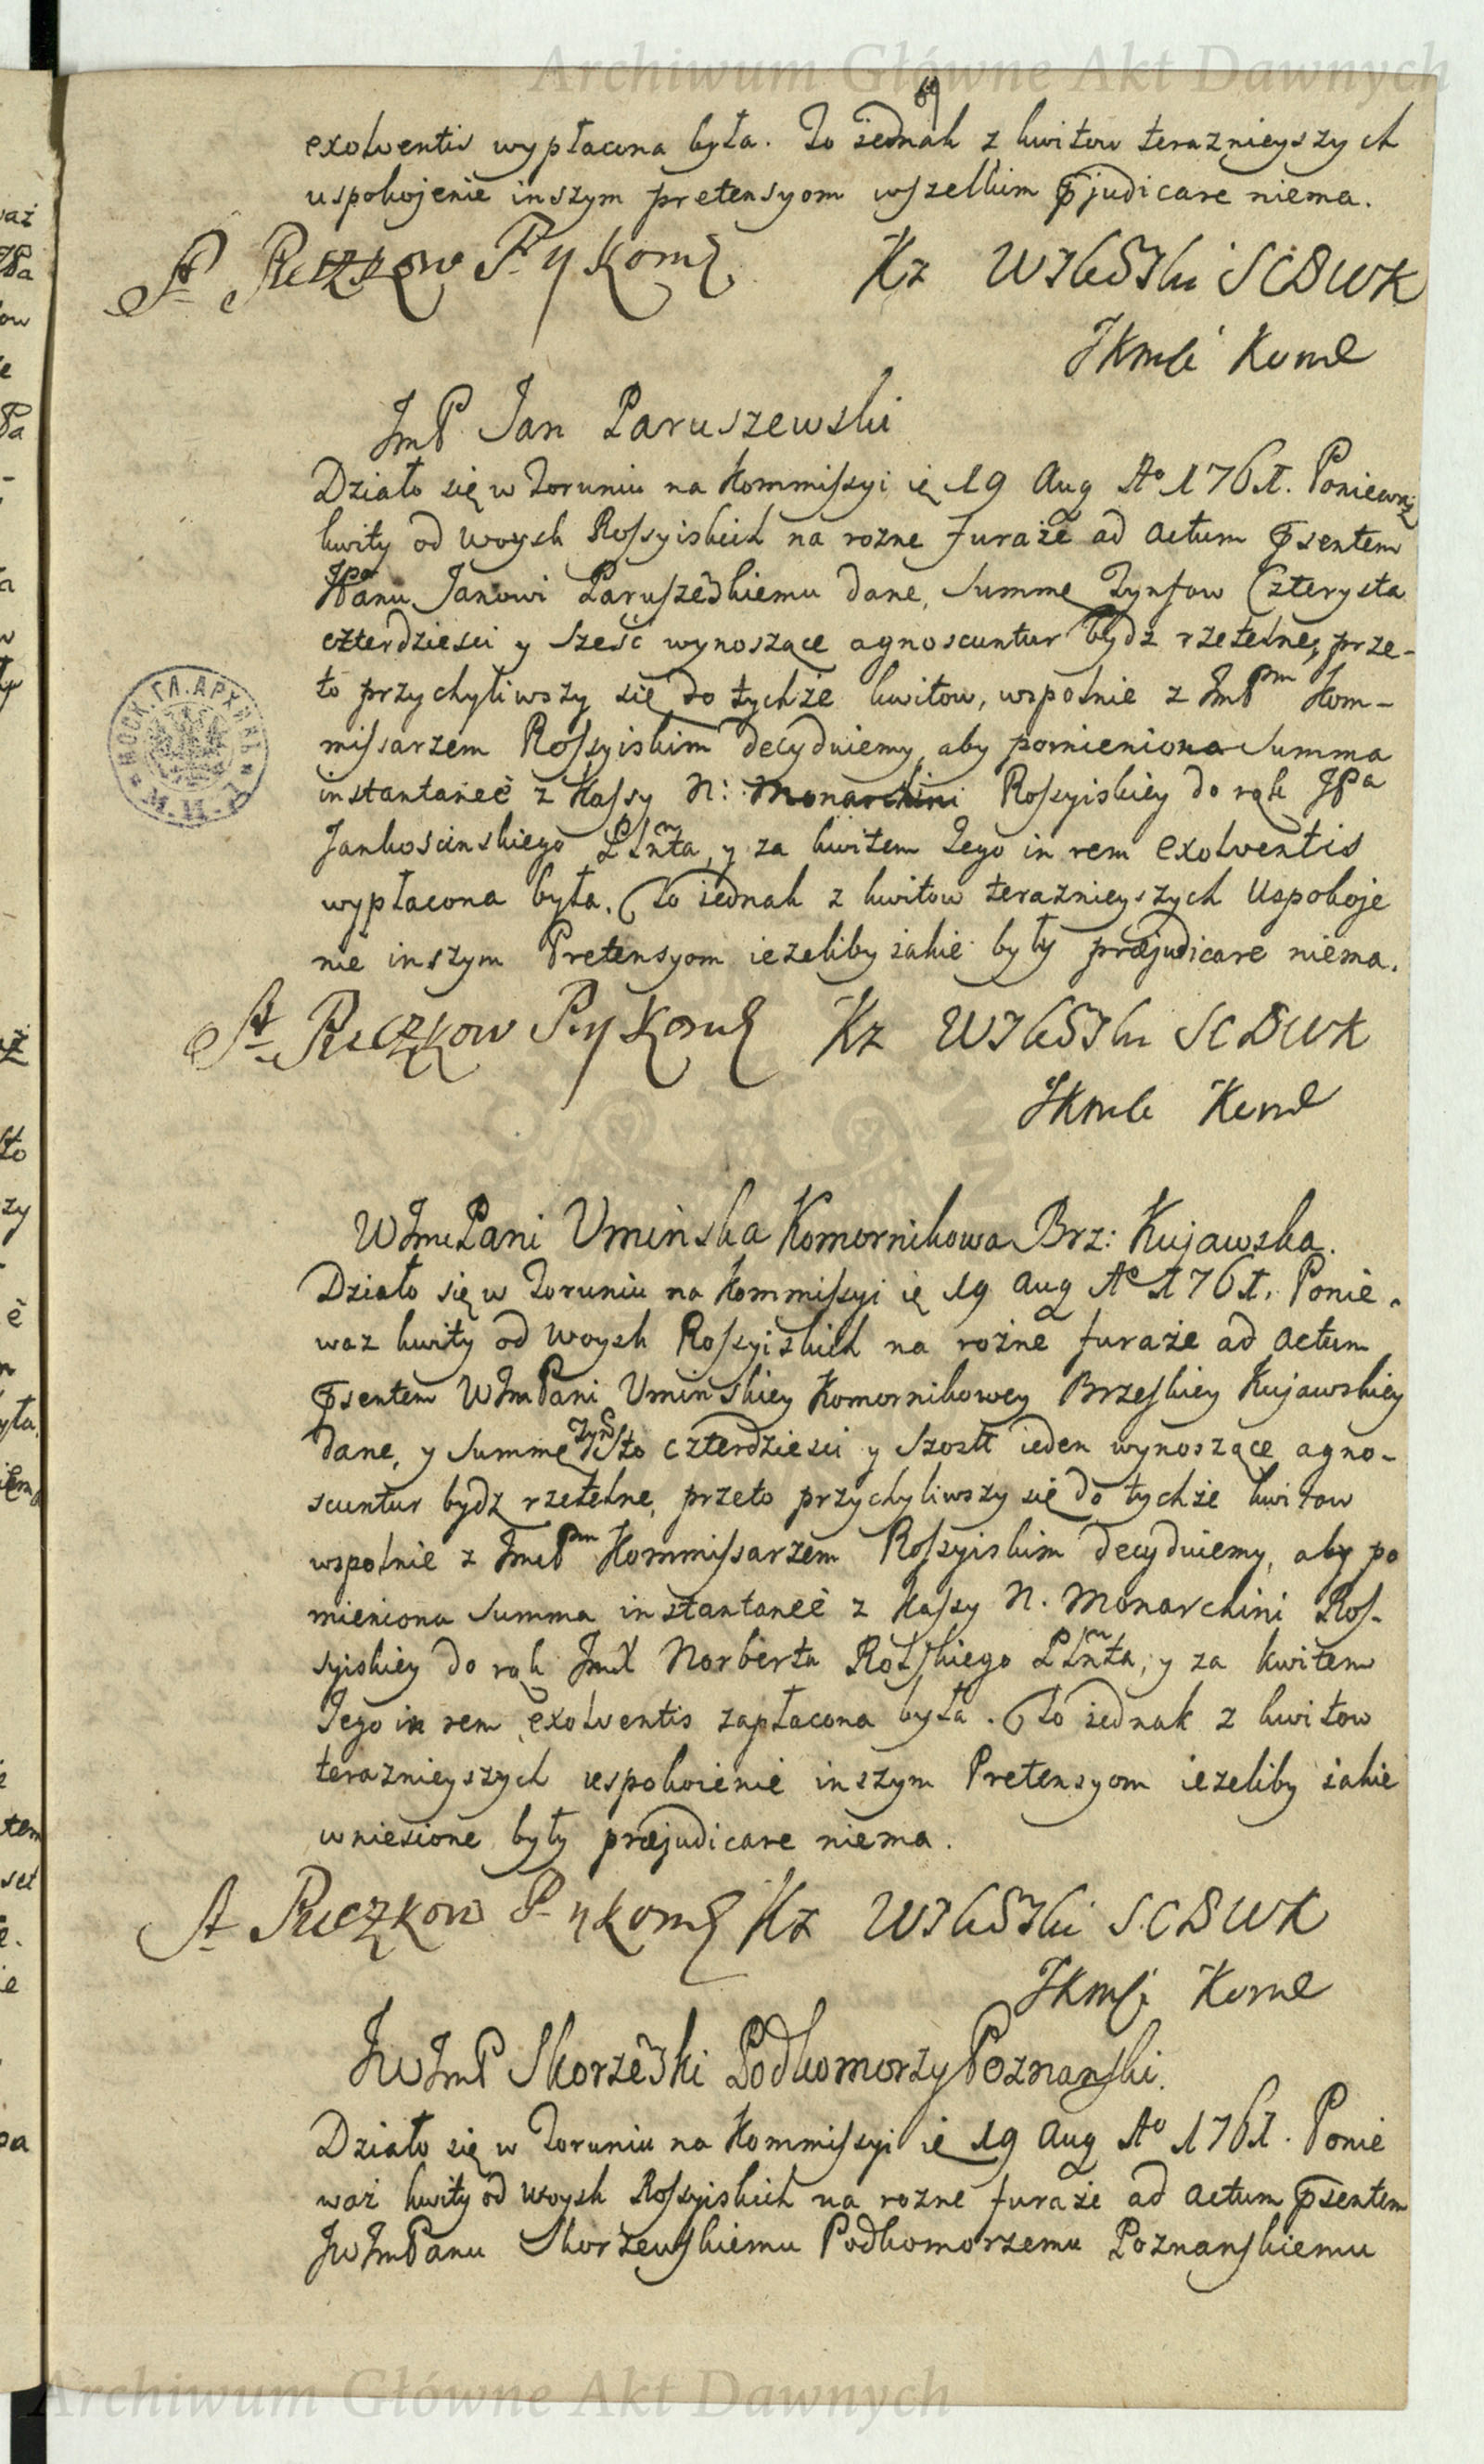 Archiwum Główne Akt Dawnych
69
exolventis wypłacona była. To iednak z kwitow teraznieyszych
uspokojenie inszym pretensyom wszelkim Pjudicare niema.
St Reczkow P y Kom
Kz Wski SCDWK
JKmśi Kome
JmP Jan Paruszewski
Działo się w Toruniu na Kommissyi ię 19 Aug Ao 1761. Poniewaz
kwity od Woysk Rossyiskich na rozne furaże ad actum Psentem
JPanu Janowi Paruszewskiemu dane, Summe Tynfow Czterysta
czterdziesci y sześć wynoszące agnoscuntur bydz rzetelne, prze-
to przychyliwszy się do tychże kwitow, wspolnie z JmPm Kom-
missarzem Rossyiskim decyduiemy, aby pomieniona Summa
instantaneè z Kassy N: Monarchini Rossyiskiey do rąk JPa
Jankoscinskiego Plnta, y za kwitem Jego in rem exolventis
wypłacona była. To iednak z kwitow teraznieyszych Uspokoje
nie inszym Pretensyom iezeliby iakie były præjudicare niema.
St Reczkow P y Kom
Kz Wski SCDWK
JKmśi Kome
WJmcPani Uminska Komornikowa Brz: Kujawska.
Działo się w Toruniu na Kommissyi ię 19 Aug Ao 1761. Ponie-
waz kwity od Woysk Rossyiskich na rożne furaże ad actum
Psentem WJmPani Uminskiey Komornikowey Brzeskiey Kujawskiey
dane, y Summe Tynf Sto czterdziesci y Szostt ieden wynoszące agno-
scuntur bydz rzetelne, przeto przychyliwszy się do tychże kwitow
wspolnie z JmcPm Kommissarzem Rossyiskim decyduiemy, aby po
mieniona Summa instantaneè z Kassy N. Monarchini Ros-
syiskiey do rąk JmX Norberta Plnta, y za kwitem
Jego in rem exolventis zapłacona była. To iednak z kwitow
teraznieyszych uspokoienie inszym Pretensyom iezeliby iakie
wniesione były præjudicare niema.
St Reczkow P y Kom
Kz Wski SCDWK
JKmśi Kome
JWJmP Skorzewski Podkomorzy Poznanski.
Działo się w Toruniu na Kommissyi ię 19 Aug Ao 1761. Ponie
waż kwity od Woysk Rossyiskich na rozne furaże ad actum Psentem
JWJmPanu Skorzewskiemu Podkomorzemu Poznanskiemu
Archiwum Główne Akt Dawnych